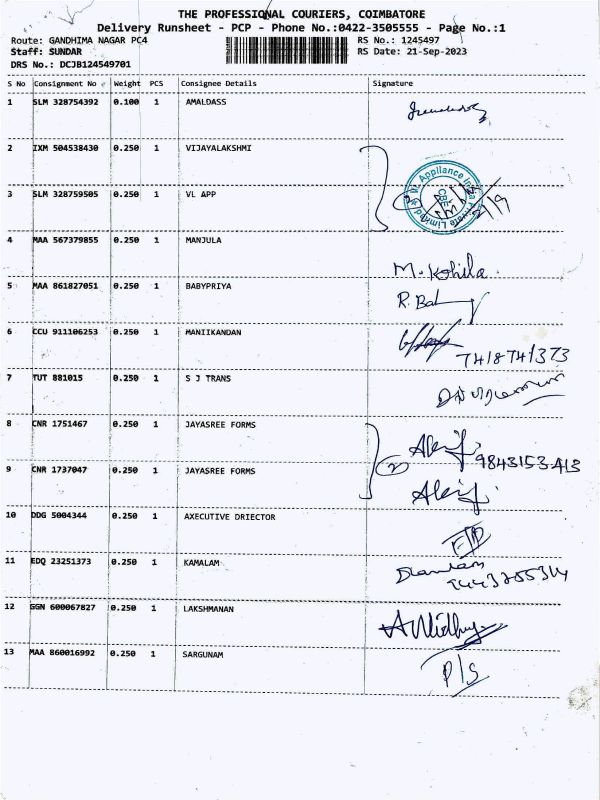 THE PROFESSIONAL COURIERS, COIMBATORE
Delivery Runsheet - PCP - Phone No.:0422-3505555 - Page No.:1
Route: GANDHIMA NAGAR PC4 RS No.: 1245497
Staff: SUNDAR RS Date: 21-Sep-2023
DRS No.: DCJB124549701
S No Consignment No Weight PCS Consignee Details Signature
1 SLM 328754392 0.100 1 AMALDASS
2 IXM 504538430 0.250 1 VIJAYALAKSHMI
VL Appliance India Private Limited
CBE
3 SLM 328759505 0.250 1 VL APP
21/9
4 MAA 567379855 0.250 1 MANJULA
M. Kohila
5 MAA 861827051 0.250 1 BABYPRIYA
R. Bab
6 CCU 911106253 0.250 1 MANIIKANDAN
7418741373
7 TUT 881015 0.250 1 S J TRANS
8 CNR 1751467 0.250 1 JAYASREE FORMS
2 9843153413
9 CNR 1737047 0.250 1 JAYASREE FORMS
10 DDG 5004344 0.250 1 AXECUTIVE DRIECTOR
11 EDQ 23251373 0.250 1 KAMALAM
12 GGN 600067827 0.250 1 LAKSHMANAN
13 MAA 860016992 0.250 1 SARGUNAM
P/S